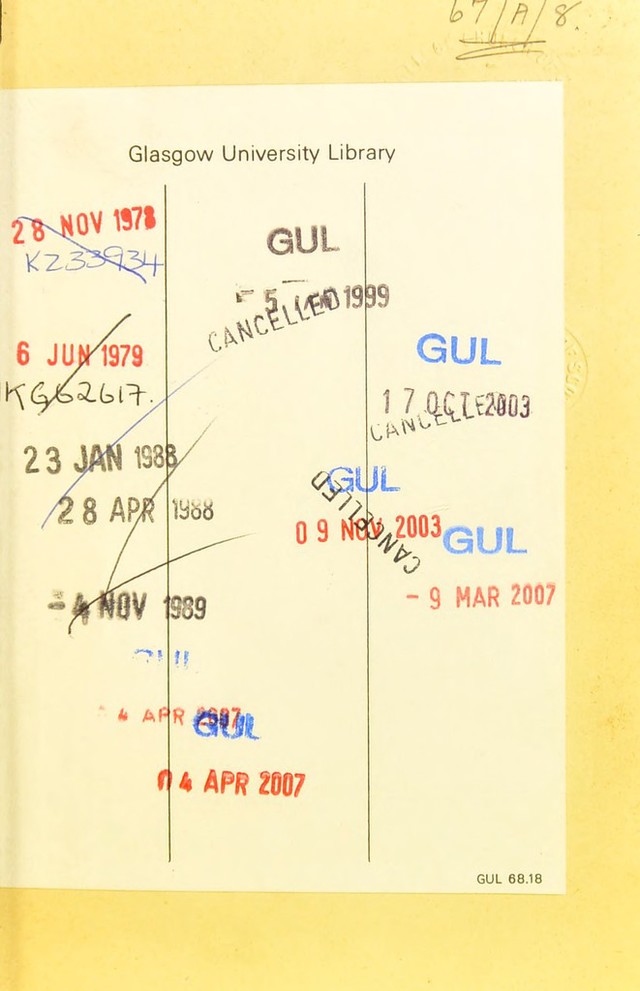 67/A/8.
Glasgow University Library
28 NOV 1978
KZ33934
6 JUN 1979
KG62617.
23 JAN 1988
28 APR 1988
- 4 NOV 1989
GUL
4 APR 2007
GUL
04 APR 2007
GUL
- 5 1999
CANCELLED
GUL
17 OCT 2003
CANCELLED
GUL
CANCELLED
09 NOV 2003
GUL
- 9 MAR 2007
GUL 68.18